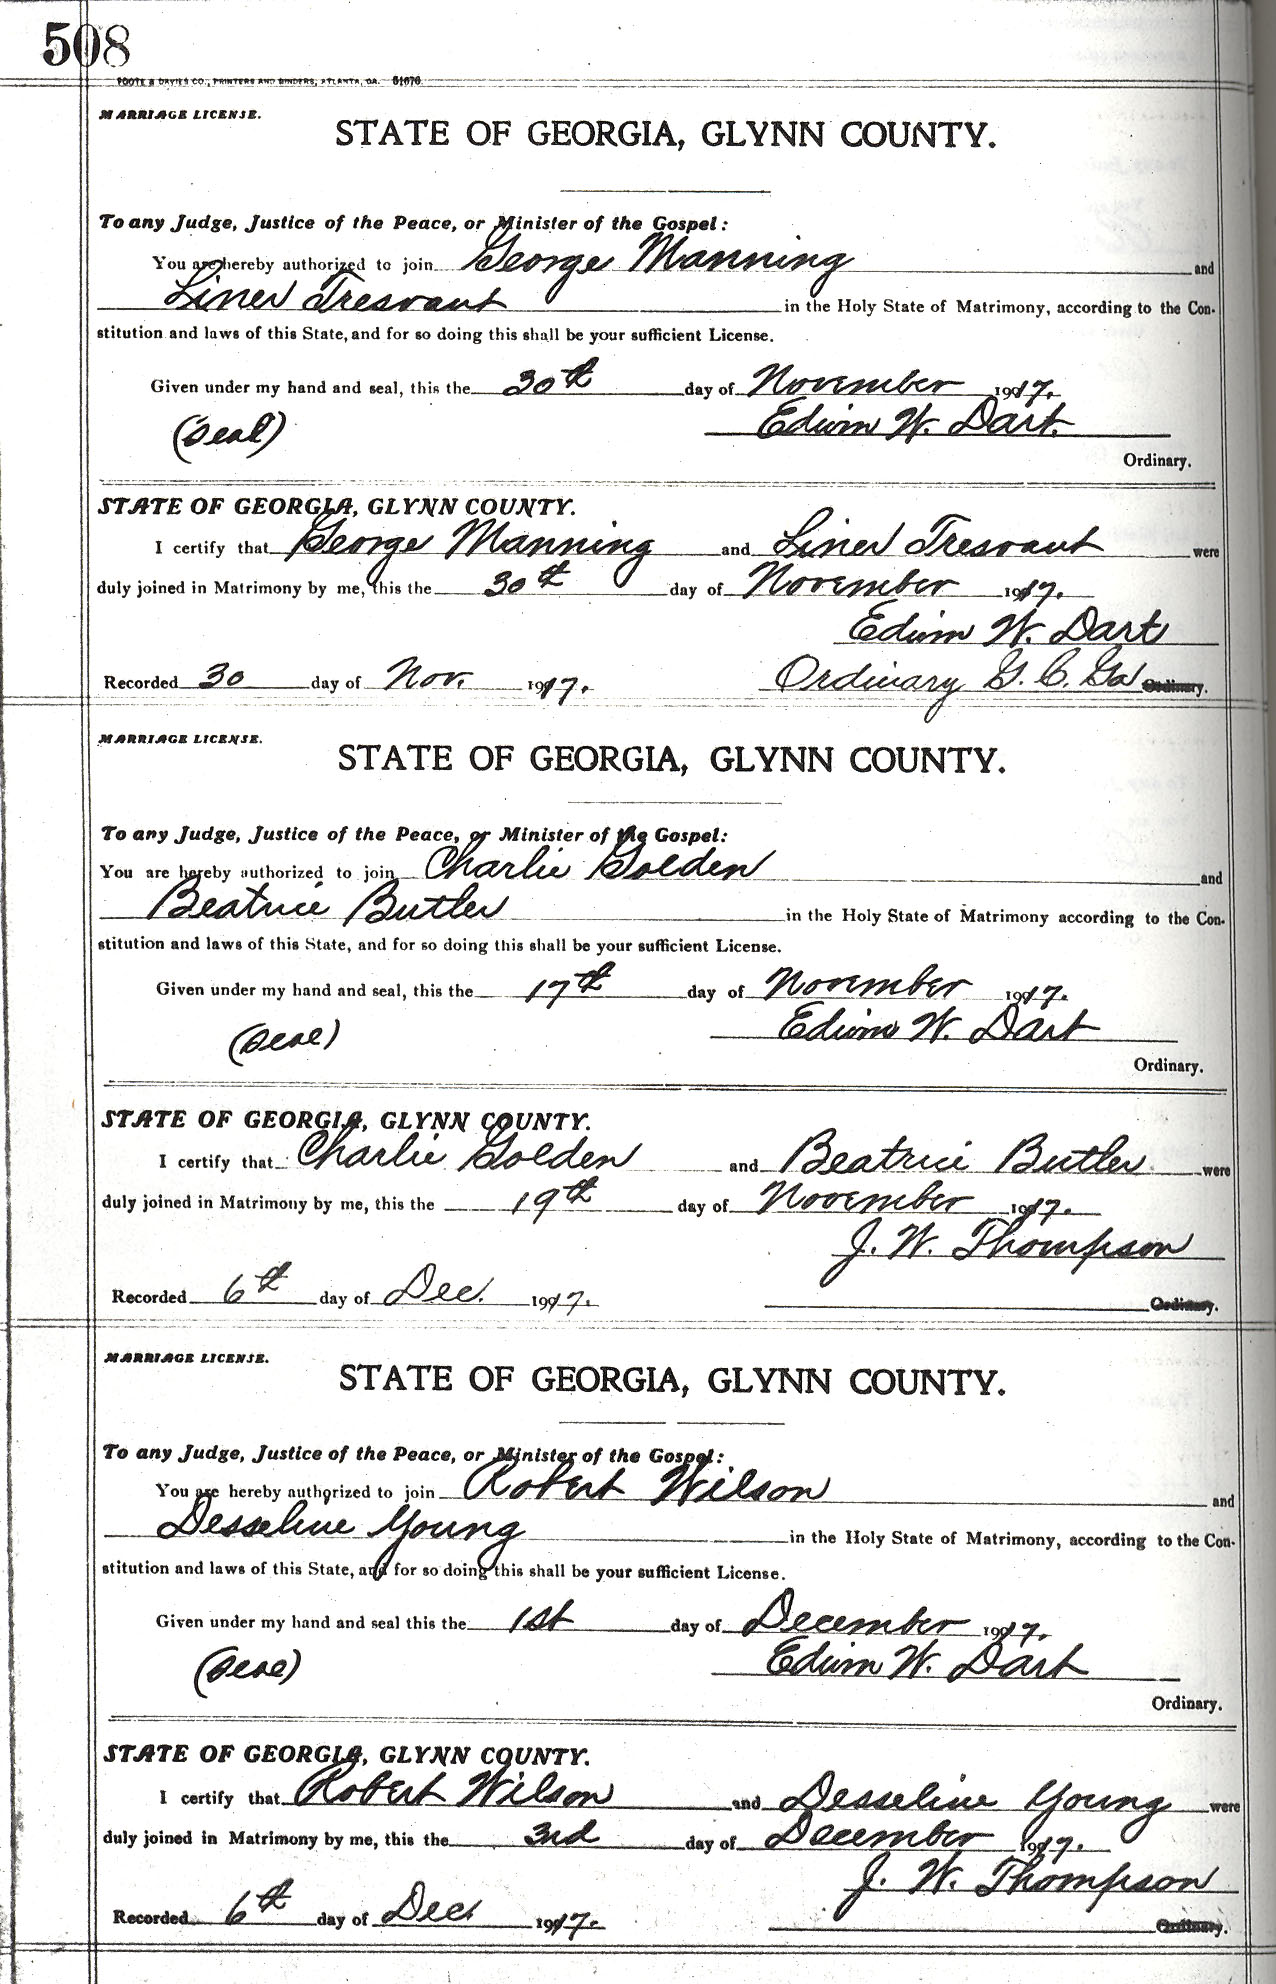 508
FOOTE & DAVIES CO., PRINTERS AND BINDERS, ATLANTA, GA. 51676
MARRIAGE LICENSE.
STATE OF GEORGIA, GLYNN COUNTY.
To any Judge, Justice of the Peace, or Minister of the Gospel:
You are hereby authorized to join George Manning and
Liner Tresvant in the Holy State of Matrimony, according to the Con-
stitution and laws of this State, and for so doing this shall be your sufficient License.
Given under my hand and seal, this the 30th day of November 1917.
(Seal) Edwin W. Dart.
Ordinary.
STATE OF GEORGIA, GLYNN COUNTY.
I certify that George Manning and Liner Tresvant were
duly joined in Matrimony by me, this the 30th day of November 1917.
Edwin W. Dart
Recorded 30 day of Nov. 1917. Ordinary G. C. Ga Ordinary.
MARRIAGE LICENSE.
STATE OF GEORGIA, GLYNN COUNTY.
To any Judge, Justice of the Peace, or Minister of the Gospel:
You are hereby authorized to join Charlie Golden and
Beatrice Butler in the Holy State of Matrimony according to the Con-
stitution and laws of this State, and for so doing this shall be your sufficient License.
Given under my hand and seal, this the 17th day of November 1917.
(Seal) Edwin W. Dart
Ordinary.
STATE OF GEORGIA, GLYNN COUNTY.
I certify that Charlie Golden and Beatrice Butler were
duly joined in Matrimony by me, this the 19th day of November 1917.
J. W. Thompson
Recorded 6th day of Dec. 1917. Ordinary.
MARRIAGE LICENSE.
STATE OF GEORGIA, GLYNN COUNTY.
To any Judge, Justice of the Peace, or Minister of the Gospel:
You are hereby authorized to join Robert Wilson and
Desseline Young in the Holy State of Matrimony, according to the Con-
stitution and laws of this State, and for so doing this shall be your sufficient License.
Given under my hand and seal this the 1st day of December 1917.
(Seal) Edwin W. Dart
Ordinary.
STATE OF GEORGIA, GLYNN COUNTY.
I certify that Robert Wilson and Desseline Young were
duly joined in Matrimony by me, this the 3rd day of December 1917.
J. W. Thompson
Recorded 6th day of Dec. 1917. Ordinary.